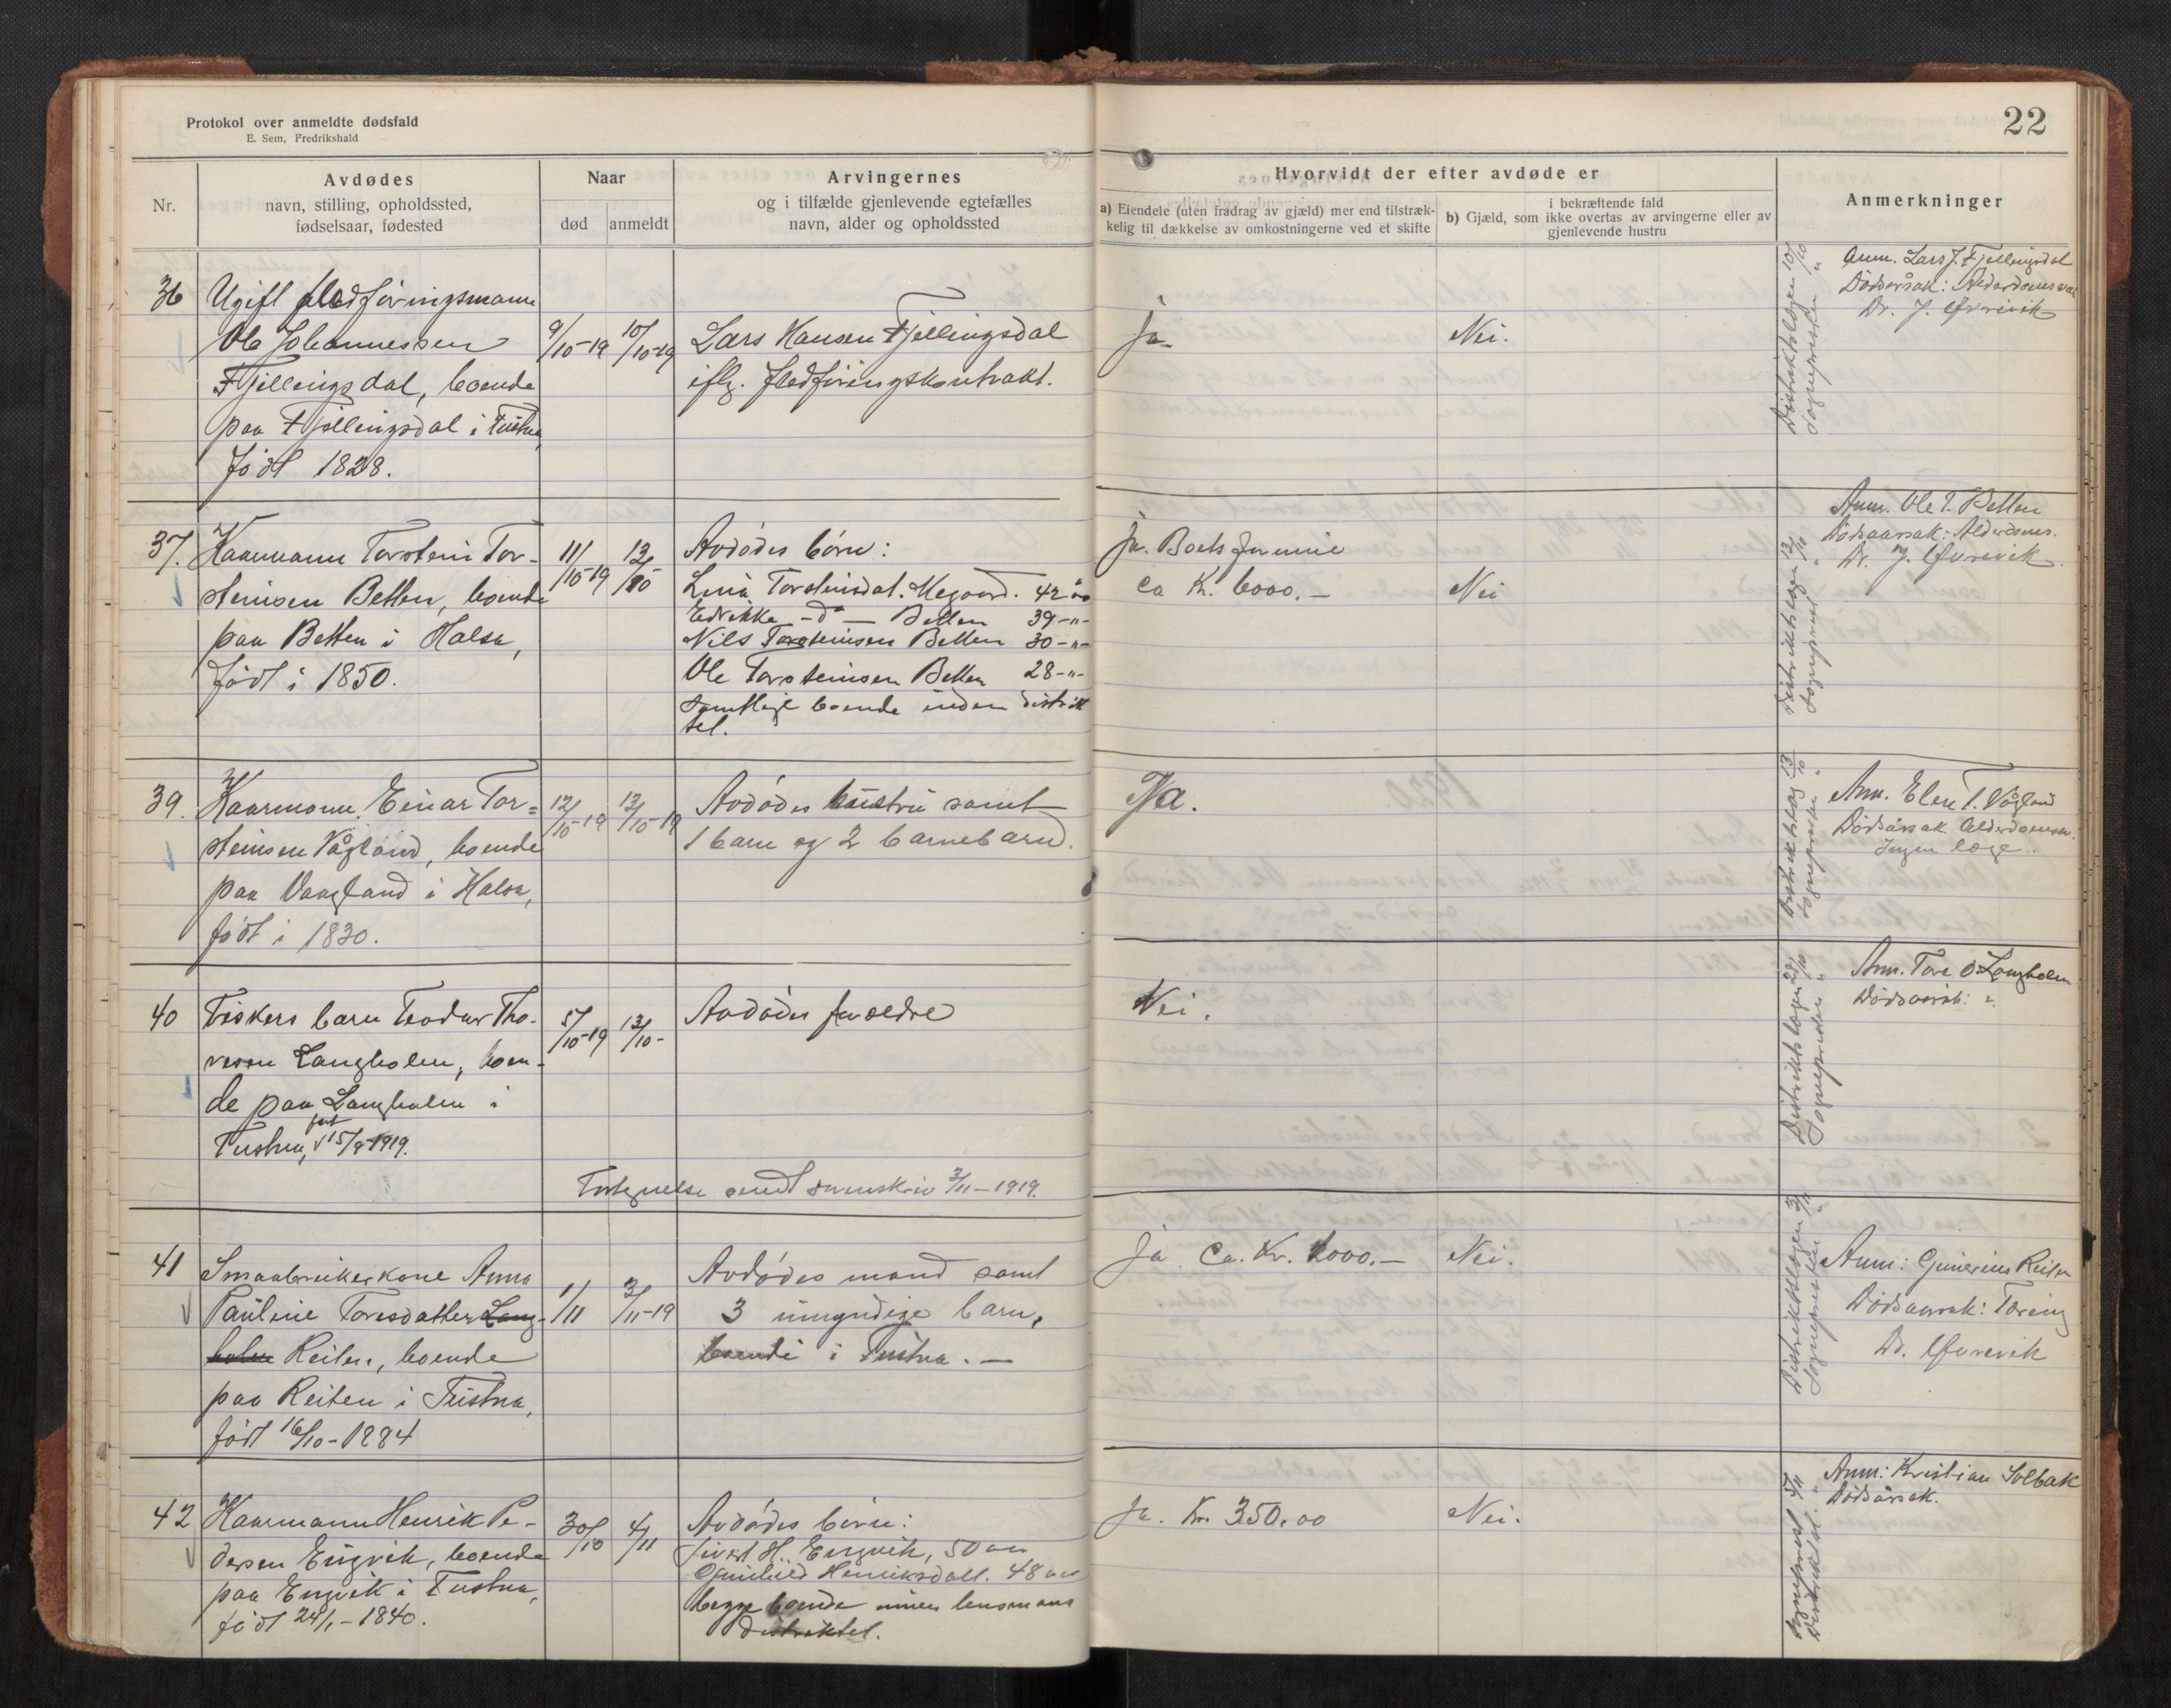 Protokol over anmeldte dødsfald
E. Sem, Fredrikshald
22
Nr.
Avdødes
navn, stilling, opholdssted,
fødselsaar, fødested
Naar
død
anmeldt
Arvingernes
og i tilfælde gjenlevende egtefælles
navn, alder og opholdssted
Hvorvidt der efter avdøde er
a) Eiendele (uten fradrag av gjæld) mer end tilstræk-
kelig til dækkelse av omkostningerne ved et skifte
i bekræftende fald
b) Gjæld, som ikke overtas av arvingerne eller av
gjenlevende hustru
Anmerkninger
36
Ugift flodføringsmann
Ole Johannessen
Fjellingsdal, boende
paa Fjellingsdal i Tustna,
født 1828.
9/10-19
10/10-19
Lars Hansen Fjellingsdal
iflg. flodføringskontrakt.
Ja.
Nei.
Distriktslægen 10/10
Sognepresten "
Anm. Lars J. Fjellingsdal
Dødsårsak: Alderdomssvak
Dr. J. Øvrevik
37.
Kaarmann Torstein Tor-
steinsen Betten, boende
paa Betten i Halsa,
født i 1850.
11/10-19
13/10
Avdødes børn:
Lina Torsteinsdat. Megaard. 42 år
Edrikke -d- Betten 39 -"-
Nils Torsteinsen Betten 30 -"-
Ole Torsteinsen Betten 28 -"-
samtlige boende inden distrik
tet.
Ja. Boets formue
ca K. 6000.-
Nei
Distriktslægen 13/10
Sogneprest "
Anm. Ole T. Betten
Dødsaarsak: Alderdoms.
Dr. J. Øvrevik.
39.
Kaarmann Einar Tor=
steinsen Vågland, boende
paa Vaagland i Halsa,
født i 1830.
12/10-19
13/10-19
Avdødes hustru samt
1 barn og 2 barnebarn.
Ja.
Distriktslæg 13/10
Sognepresten "
Anm. Elen T. Vågland
Dødsårsak Alderdomssv.
Ingen læge.
40
Fiskers barn Teodor Tho-
resen Langholen, boen-
de paa Langholen i
Tustna, født 15/9-1919.
5/10-19
13/10-
Avdødes forældre
Nei.
Distriktslægen 23/10
Sognepresten "
Anm. Tore O. Langholen
Dødsaarsak: ?
Fortegnelse sendt sorenskriv 3/11-1919.
41
Smaabrukerkone Anna
Pauline Toresdatter Lang-
holen Reiten, boende
paa Reiten i Tustna,
født 16/10-1884
1/11
3/11-19
Avdødes mand samt
3 umyndige barn,
boende i Tustna.-
Ja. Ca. Kr. 1000.-
Nei.
Distriktslægen 3/11
Sognepresten "
Anm: Gunerius Reiten
Dødsaarsak: Tæring
Dr. Øvrevik
42
Kaarmann Henrik Pe-
dersen Engvik, boende
paa Engvik i Tustna,
født 24/1-1840.
30/10
4/11
Avdødes børn:
Sivert H. Engvik, 50 aar
Gunhild Henriksdatt. 48 aar
begge boende innen lensmans
distriktet.
Ja. Kr. 350.00
Nei.
Sogneprest 4/11
Distriktsl. "
Anm: Kristian Solbak
Dødsårsak.